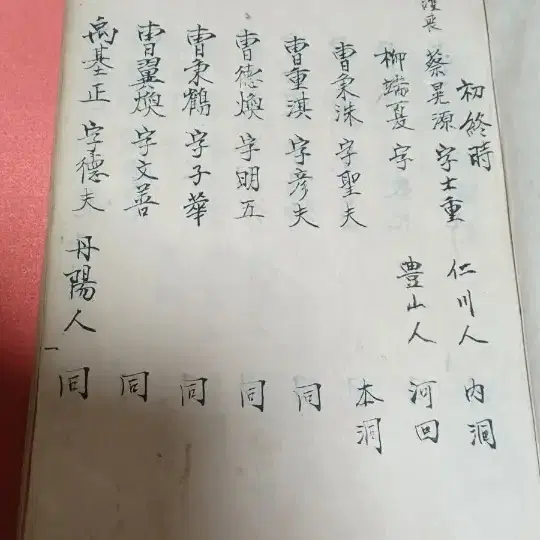 初終時
蔡晃源 字士重 仁川人 內洞
護喪
柳端夏 字 豊山人 河回
曺秉洙 字聖夫 本洞
曺重淇 字彦夫 同
曺德煥 字明五 同
曺秉鶴 字子華 同
曺翼煥 字文善 同
禹基正 字德夫 丹陽人 同